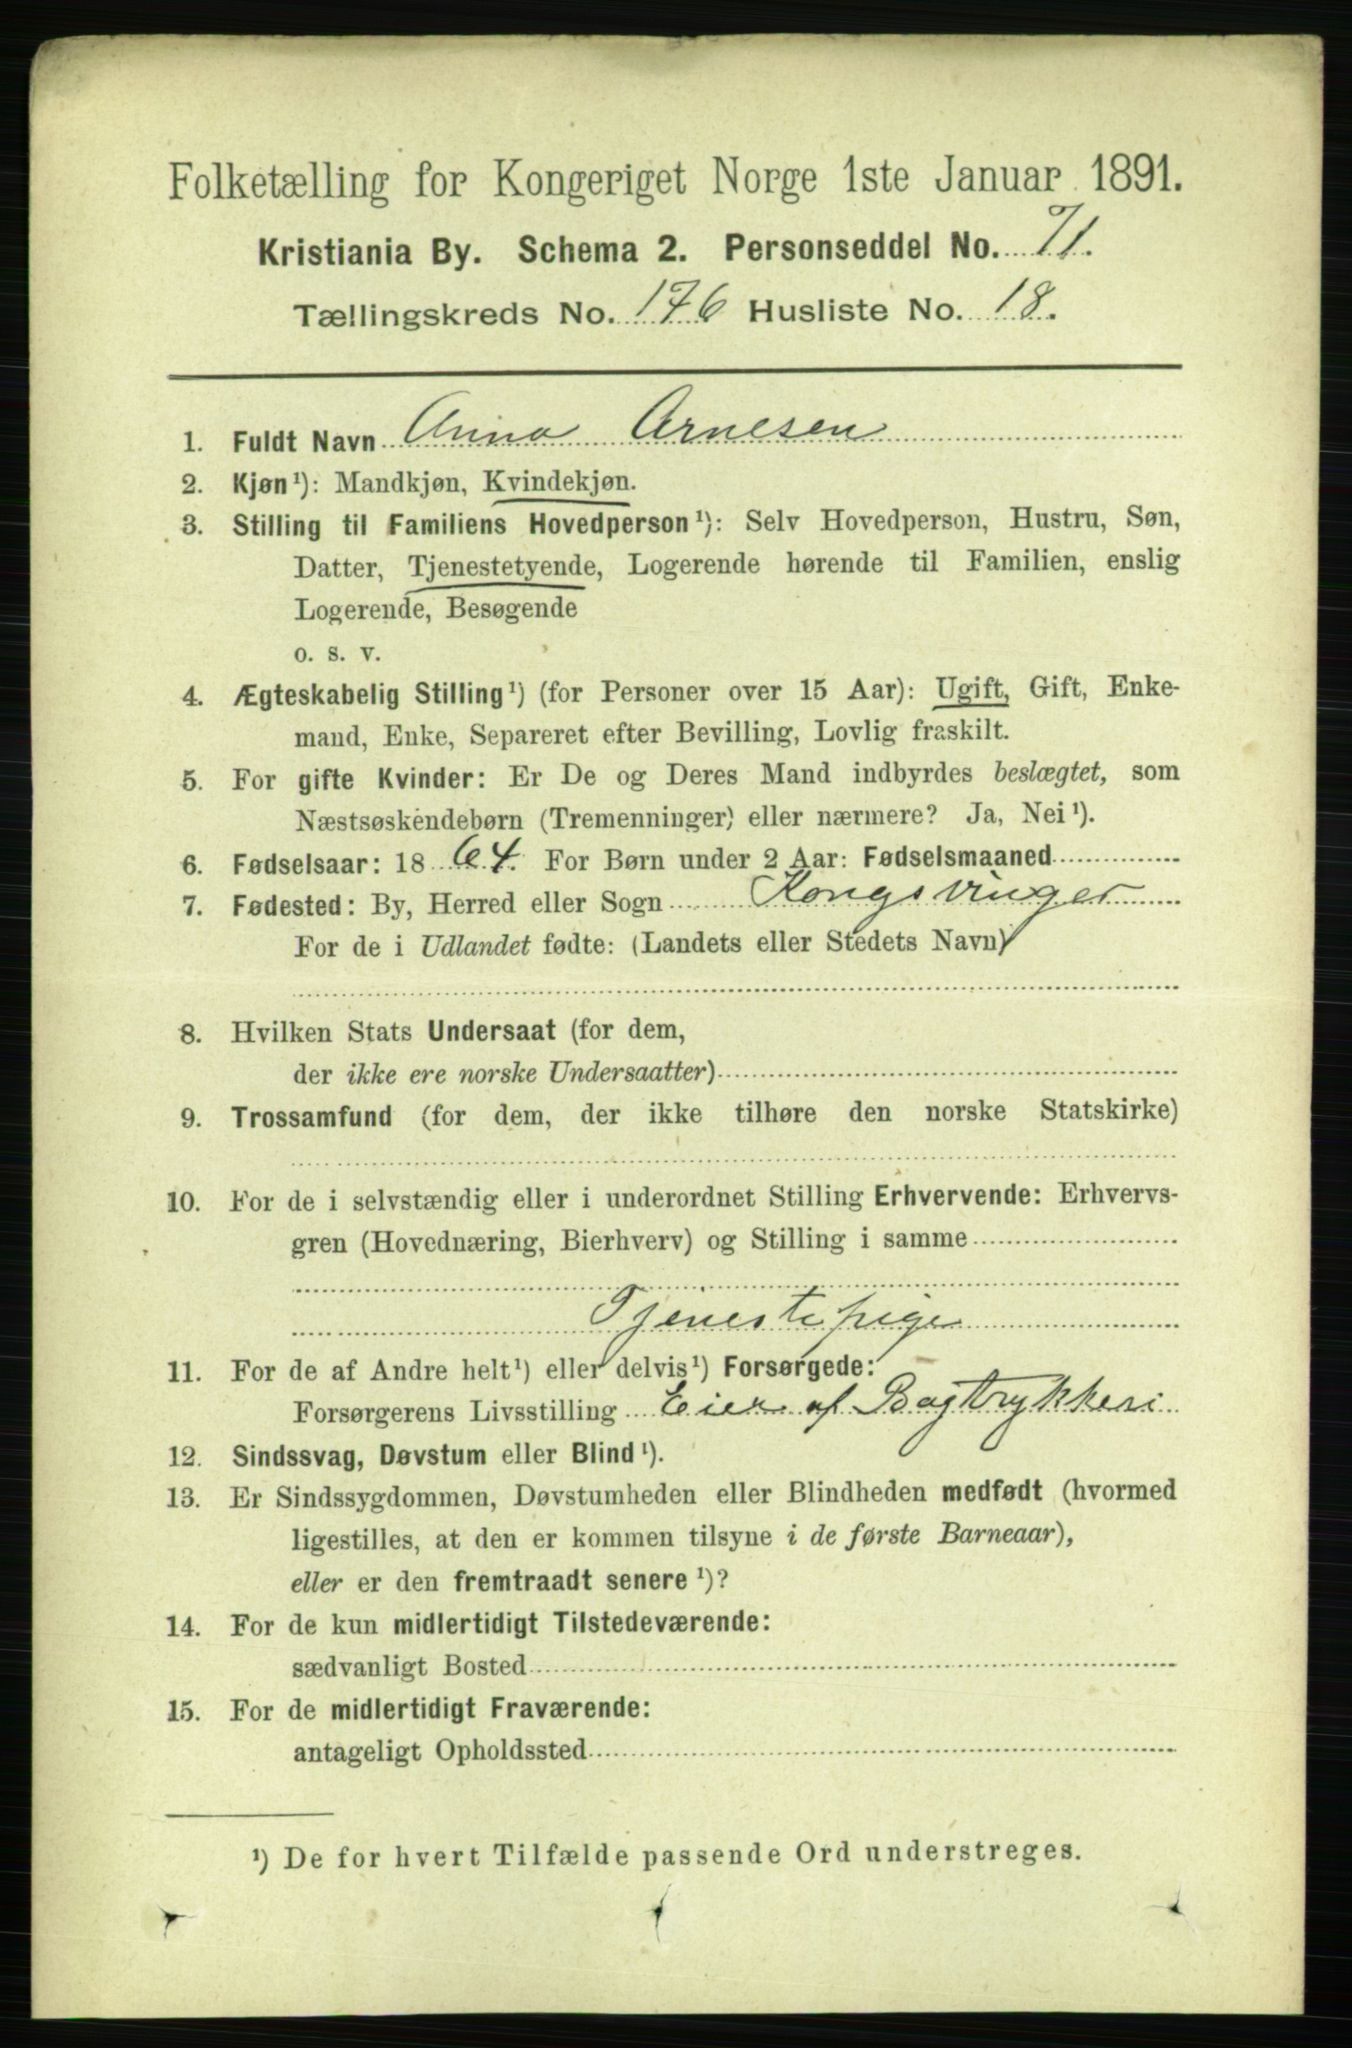 Folketælling for Kongeriget Norge 1ste Januar 1891.
Kristiania By. Schema 2. Personseddel No. 71.
Tællingskreds No. 176 Husliste No. 18.
1. Fuldt Navn Anna Arnesen
2. Kjøn¹): Mandkjøn, Kvindekjøn.
3. Stilling til Familiens Hovedperson¹): Selv Hovedperson, Hustru, Søn,
Datter, Tjenestetyende, Logerende hørende til Familien, enslig
Logerende, Besøgende
o. s. v.
4. Ægteskabelig Stilling¹) (for Personer over 15 Aar): Ugift, Gift, Enke-
mand, Enke, Separeret efter Bevilling, Lovlig fraskilt.
5. For gifte Kvinder: Er De og Deres Mand indbyrdes beslægtet, som
Næstsøskendebørn (Tremenninger) eller nærmere? Ja, Nei¹).
6. Fødselsaar: 1864. For Børn under 2 Aar: Fødselsmaaned
7. Fødested: By, Herred eller Sogn Kongsvinger
For de i Udlandet fødte: (Landets eller Stedets Navn)
8. Hvilken Stats Undersaat (for dem,
der ikke ere norske Undersaatter)
9. Trossamfund (for dem, der ikke tilhøre den norske Statskirke)
10. For de i selvstændig eller i underordnet Stilling Erhvervende: Erhvervs-
gren (Hovednæring, Bierhverv) og Stilling i samme
Tjenestepige
11. For de af Andre helt¹) eller delvis¹) Forsørgede:
Forsørgerens Livsstilling Eier af Bogtrykkeri
12. Sindssvag, Døvstum eller Blind¹).
13. Er Sindssygdommen, Døvstumheden eller Blindheden medfødt (hvormed
ligestilles, at den er kommen tilsyne i de første Barneaar),
eller er den fremtraadt senere¹)?
14. For de kun midlertidigt Tilstedeværende:
sædvanligt Bosted
15. For de midlertidigt Fraværende:
antageligt Opholdssted
¹) De for hvert Tilfælde passende Ord understreges.